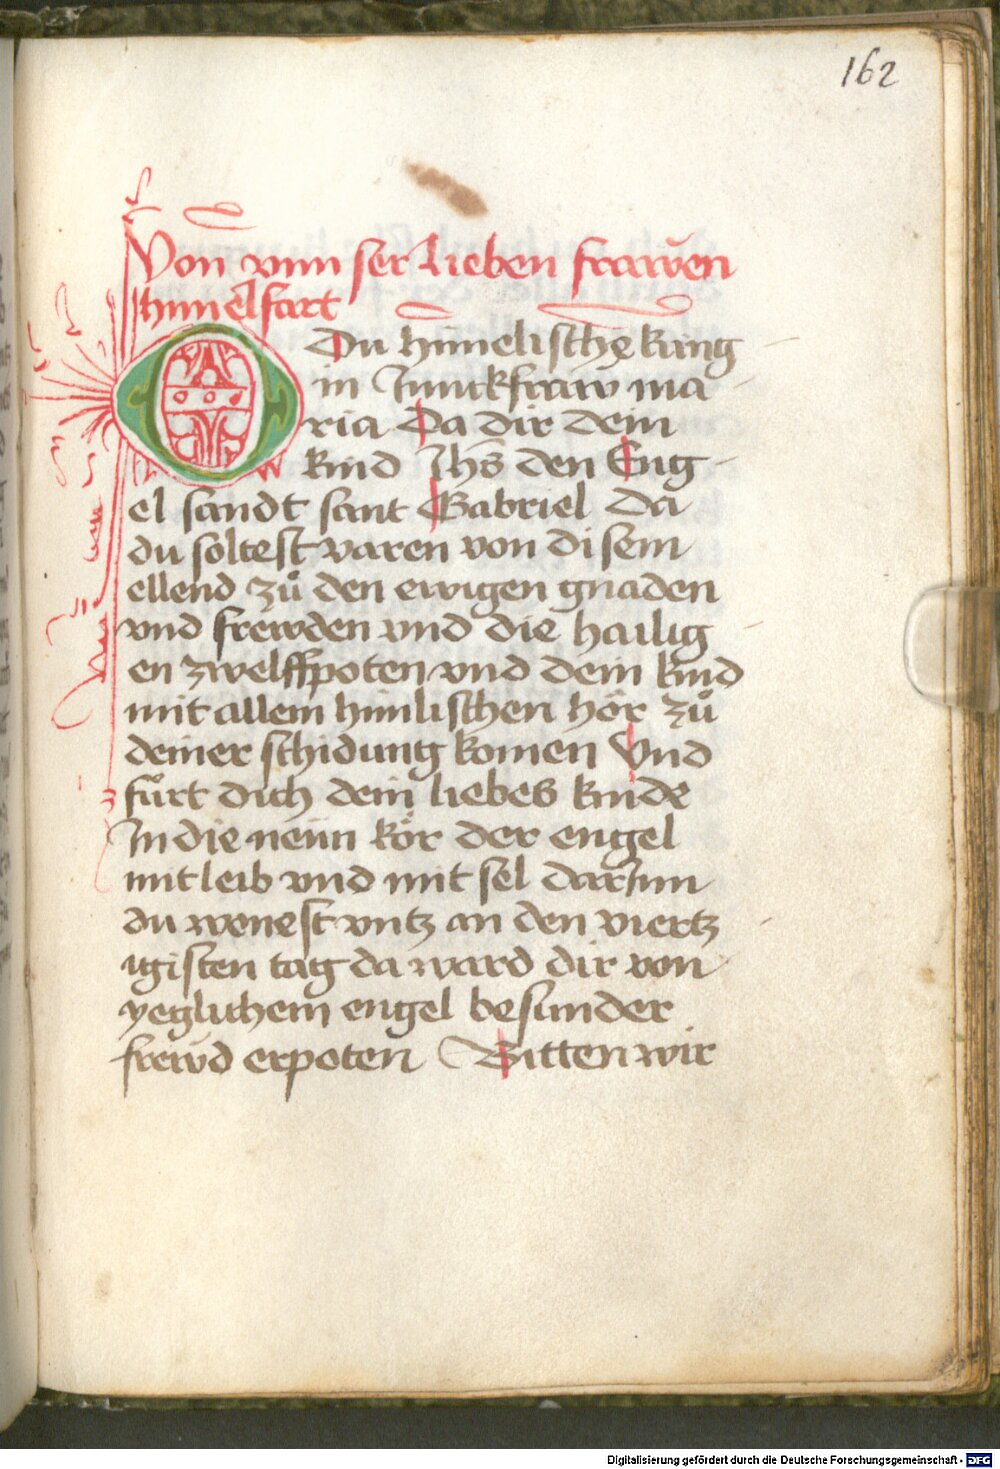 162
Von vnn ser lieben frawen
himelsart
O Du himelische kung
in Junckfraw ma
ria Da dir dein
kind Jhs den Eng
el sandt sant Gabriel Da
du soltest varen von disem
ellend zů den ewigen gnaden
vnd frewden vnd die hailig
en zwelffpoten vnd dein kind
mit allem himlischen hör zů
deiner schidung komen Vnd
fůrt dich dein liebes kinde
In die neün kör der engel
mit leib vnd mit sel darInn
du wenest vntz an den viertz
igisten tag da ward dir von
yeglichem engel besunder
frewd erpoten Bitten wir
Digitalisierung gefördert durch die Deutsche Forschungsgemeinschaft - DFG